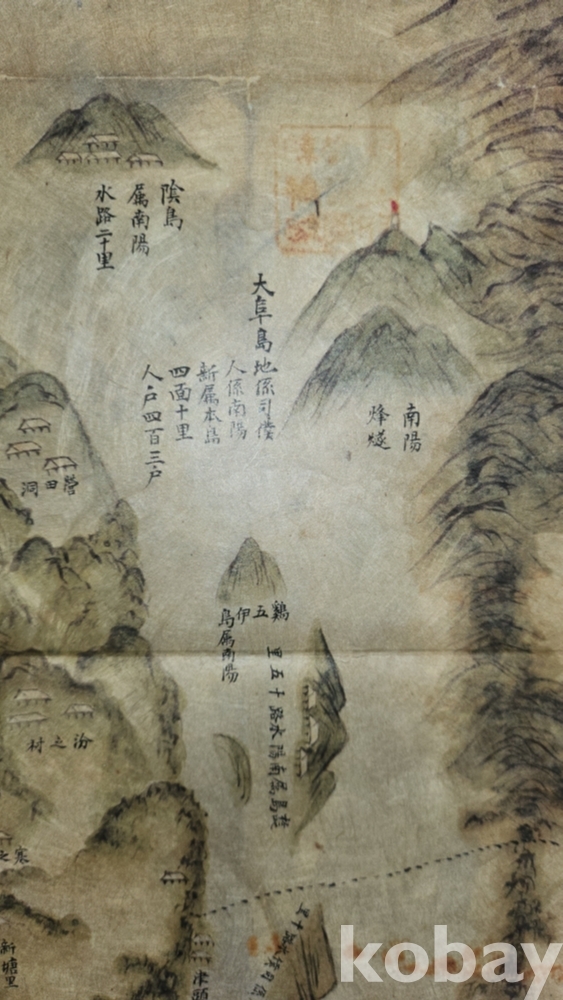 陰島
属南陽
水路二十里
大阜島
地係司僕
人係南陽
新属本島
四面十里
人戶四百三戶
南陽
烽燧
營田洞
鷄五伊
島属南陽
島属南陽水路十五里
汾之村
新塘里
津頭
kobay